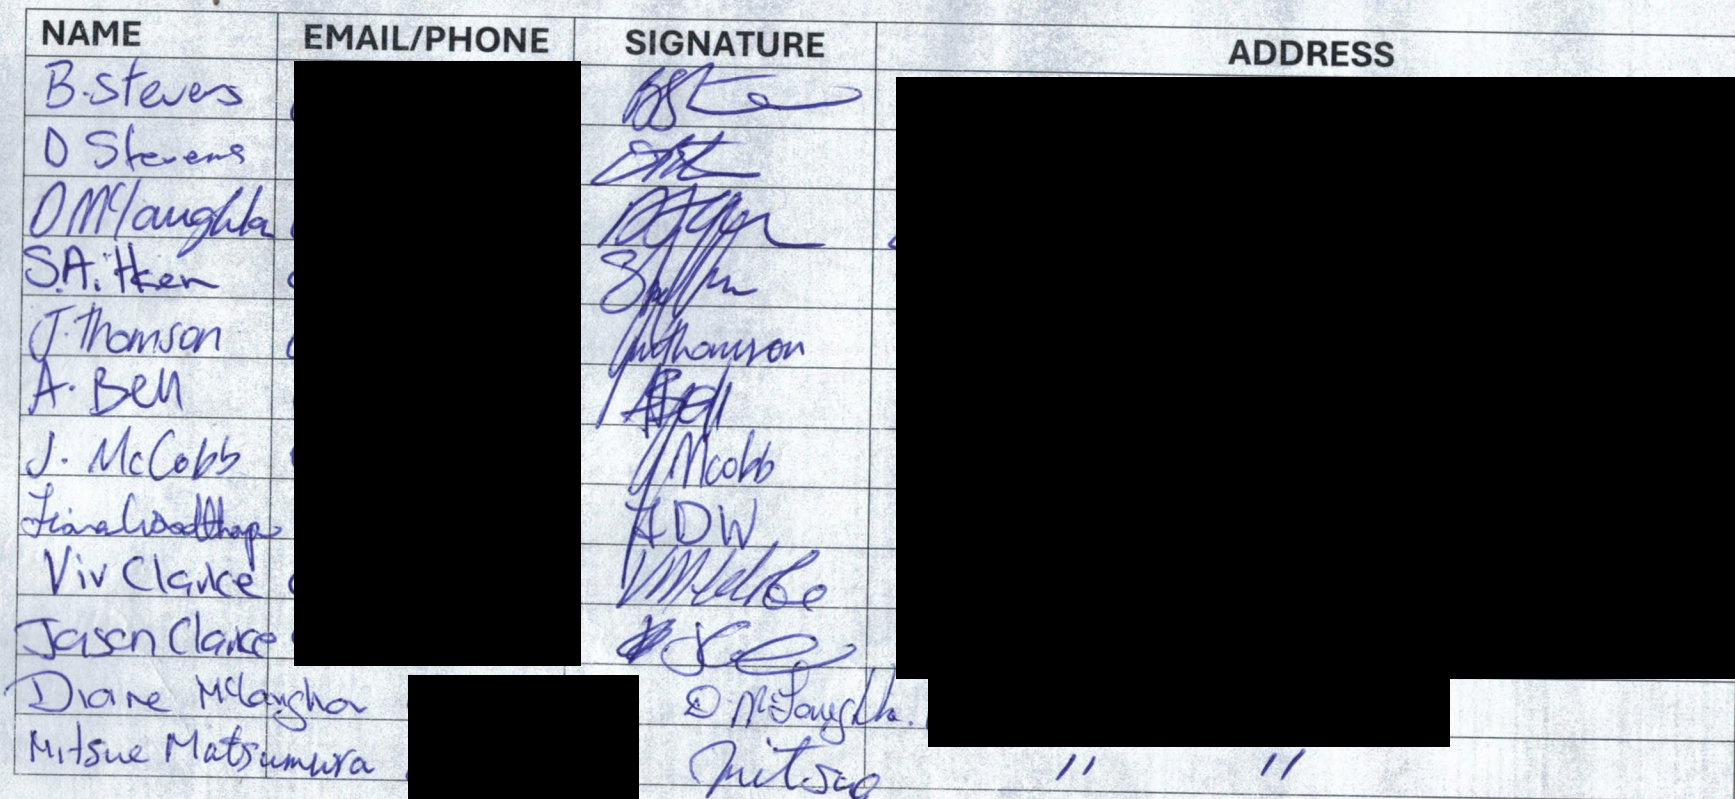 NAME EMAIL/PHONE SIGNATURE ADDRESS
B. Stevens
D Stevens
D McLaughla
S. Aitken
J. Thomson JThomson
A. Bell ABell
J. McCobb J Mcobb
Fiona FDW
Viv Clarke
Jason Clarke
Diane McLaughlan D. McLaughla.
Mitsue Matsumura mitsue " "